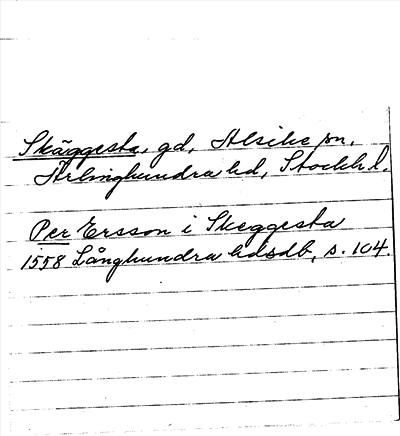 Skäggesta, gd, Alsike sn,
Ärlinghundra hd, Stockh. l.
Per Ersson i Skeggesta
1558 Långhundra hdsdb, s. 104.